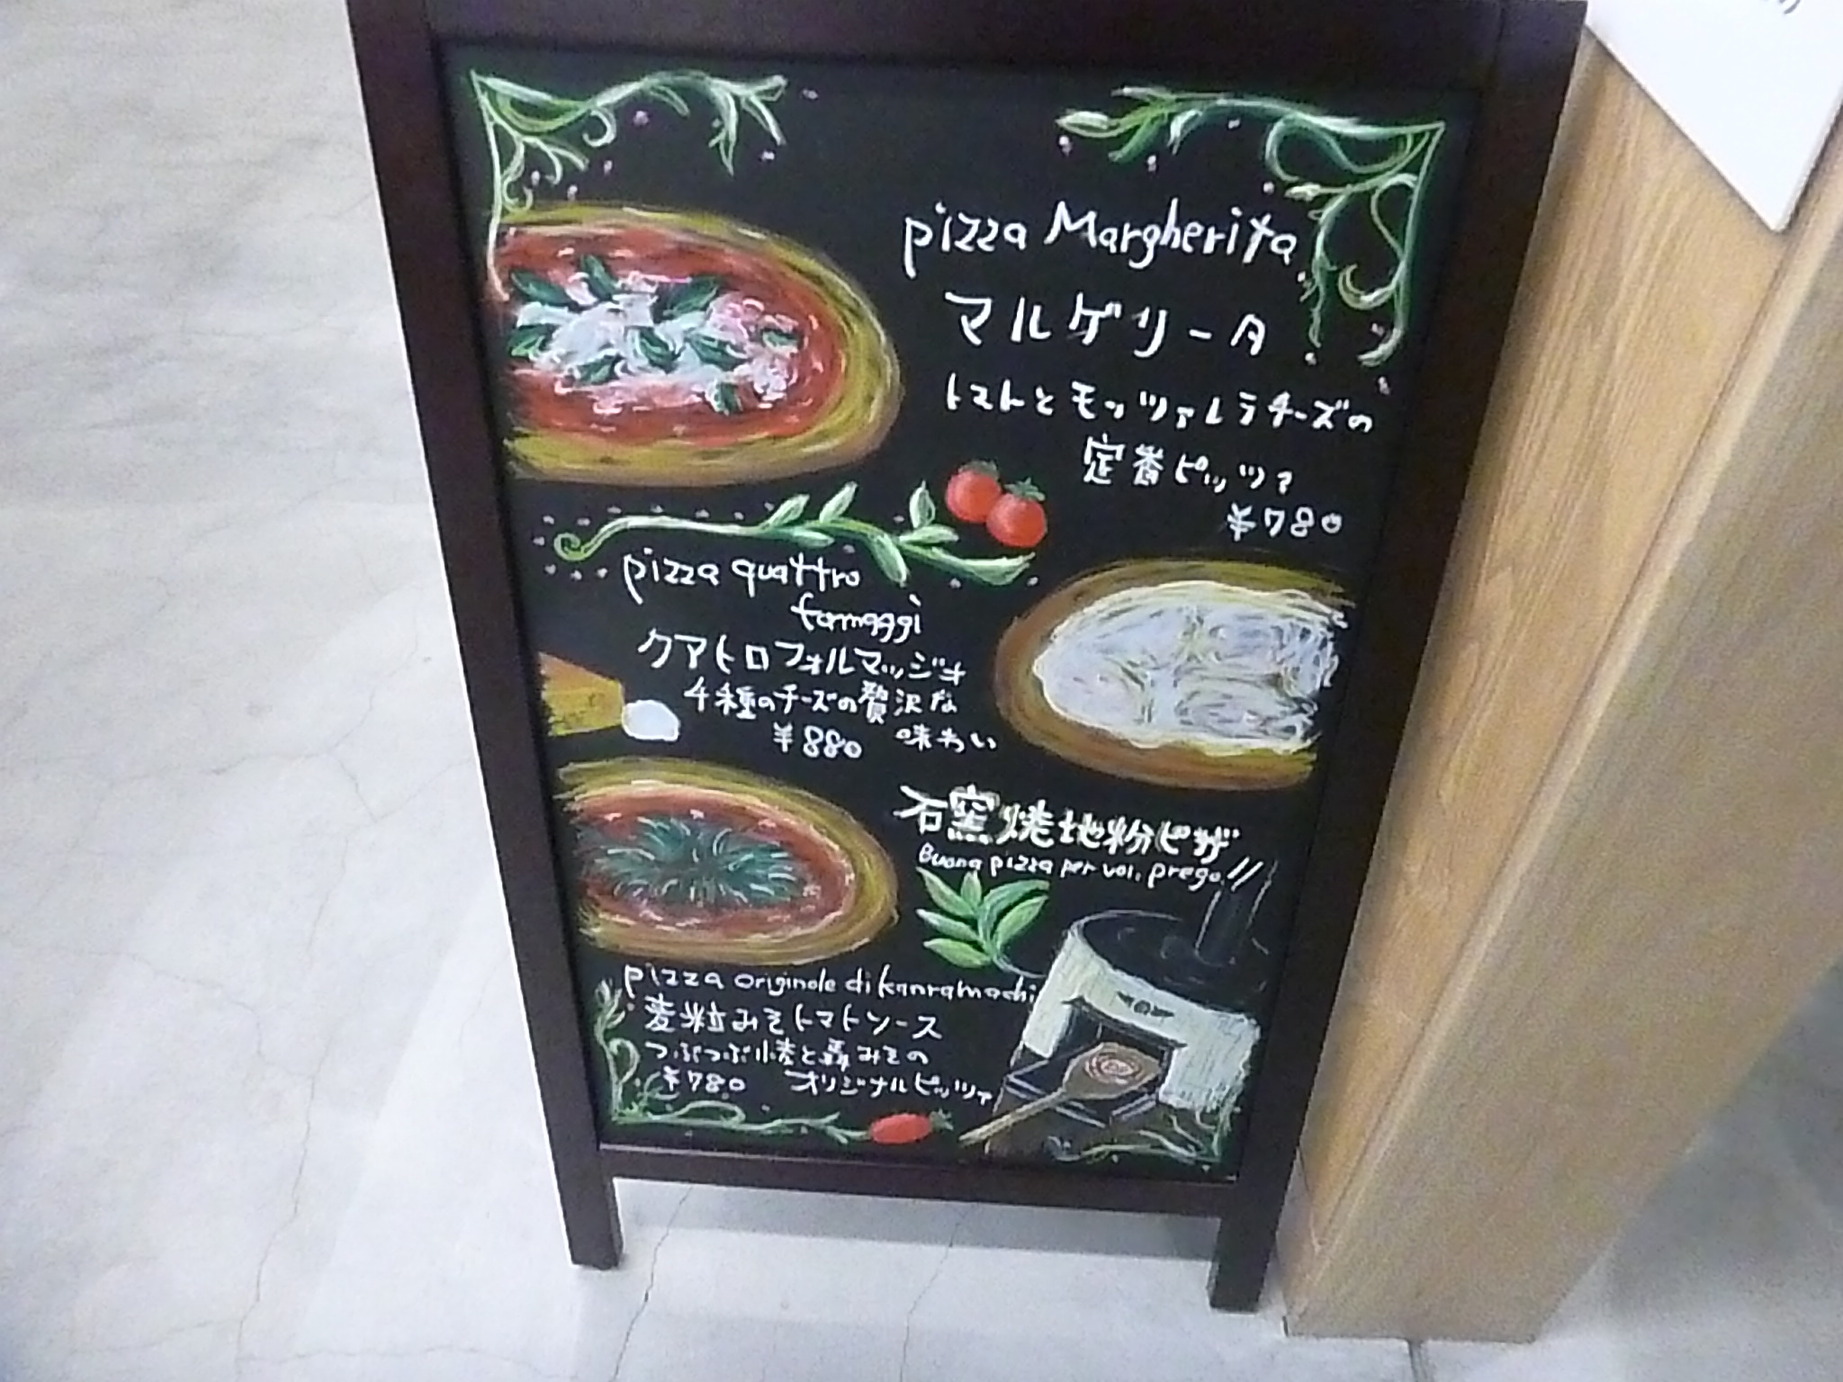 pizza Margherita
マルゲリータ
トマトとモッツァレラチーズの
定番ピッツァ
¥780
pizza quattro
formaggi
クアトロフォルマッジオ
4種のチーズの贅沢な
味わい
¥880
石窯焼地粉ピザ
Buona pizza per voi. prego!!
pizza originale di kanramachi
麦粒みそトマトソース
つぶつぶ小麦と轟みその
¥780 オリジナルピッツァ